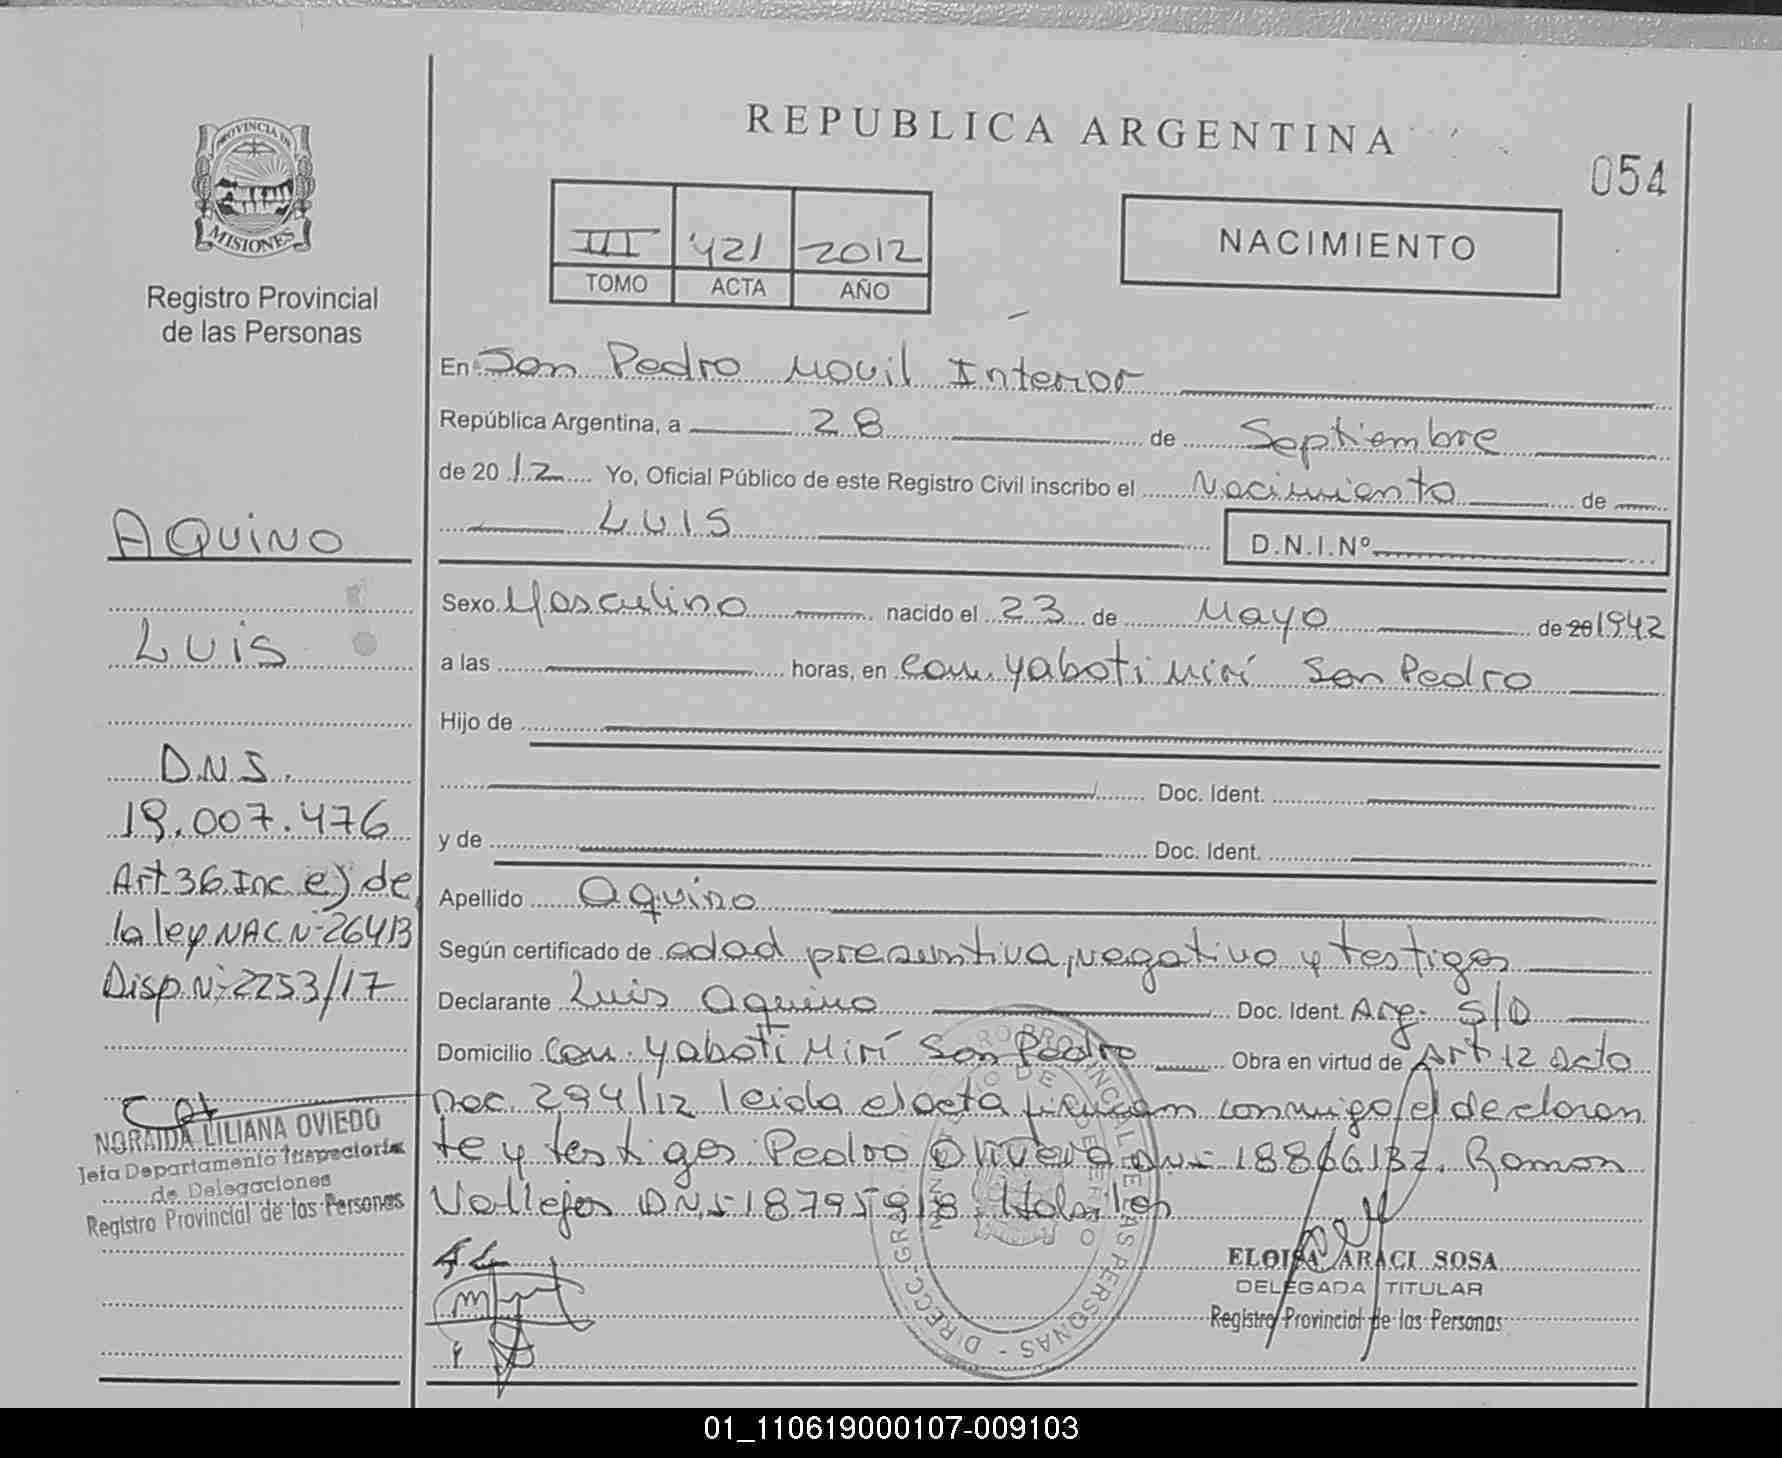 REPUBLICA ARGENTINA
054
PROVINCIA DE
MISIONES
Registro Provincial
de las Personas
III 421 2012
TOMO ACTA AÑO
NACIMIENTO
En San Pedro Movil Interior
República Argentina, a 28 de Septiembre
de 2012 Yo, Oficial Público de este Registro Civil inscribo el Nacimiento de
LUIS
D.N.I.Nº
Sexo Masculino nacido el 23 de Mayo de 20 1942
a las horas, en Com. Yaboti Mirí San Pedro
Hijo de
Doc. Ident.
y de Doc. Ident.
Apellido Aquino
Según certificado de edad presuntiva, negativo y testigos
Declarante Luis Aquino Doc. Ident. Arg. S/D
Domicilio Com. Yaboti Mirí San Pedro Obra en virtud de Art 12 Dcto
294/12 leida el acta firman conmigo el declaran
te y testigos Pedro Olivera DNI 18866132. Ramon
Vallejos DNI 18795918
AQUINO
LUIS
D.N.I.
19.007.476
Art 36 Inc e) de
la ley NAC Nº 26413
Disp. Nº 2253/17
NORAIDA LILIANA OVIEDO
Jefa Departamento Inspectoria
de Delegaciones
Registro Provincial de las Personas
ELOISA ARACI SOSA
DELEGADA TITULAR
Registro Provincial de las Personas
01_110619000107-009103